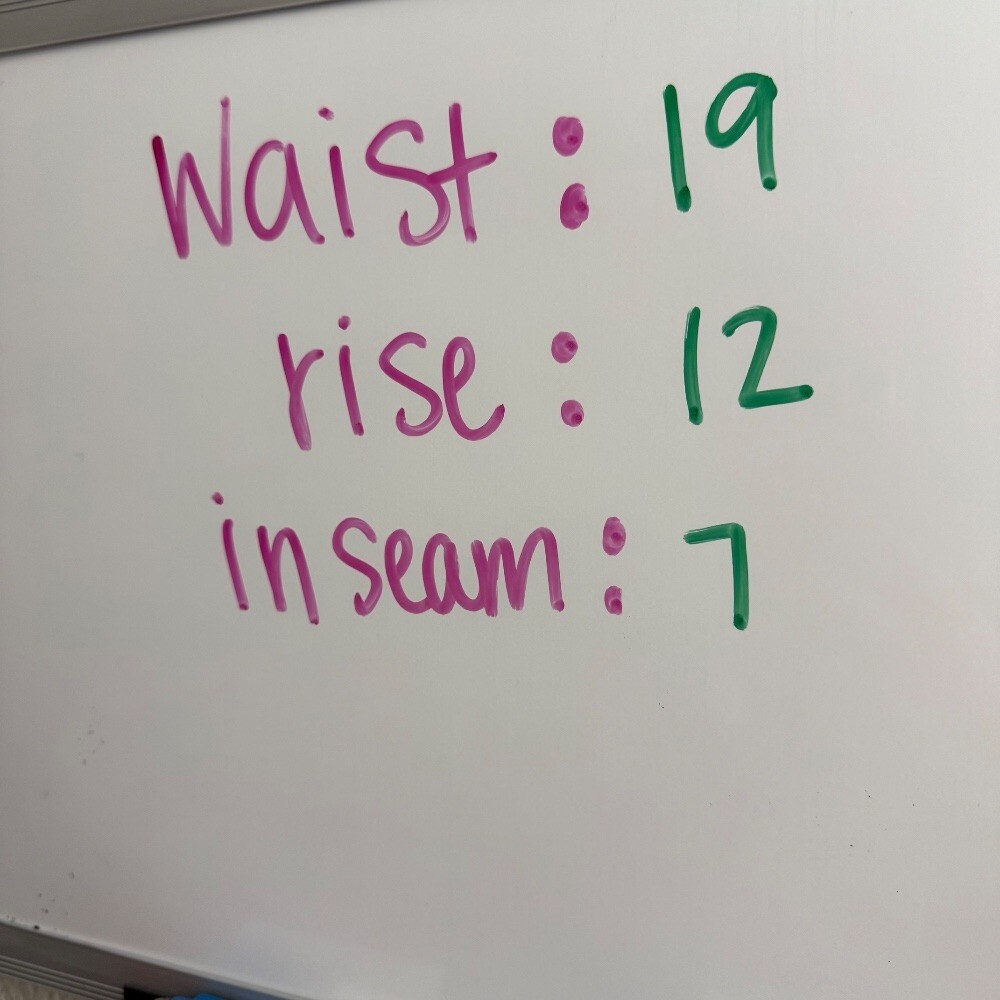 Waist : 19
rise : 12
inseam : 7